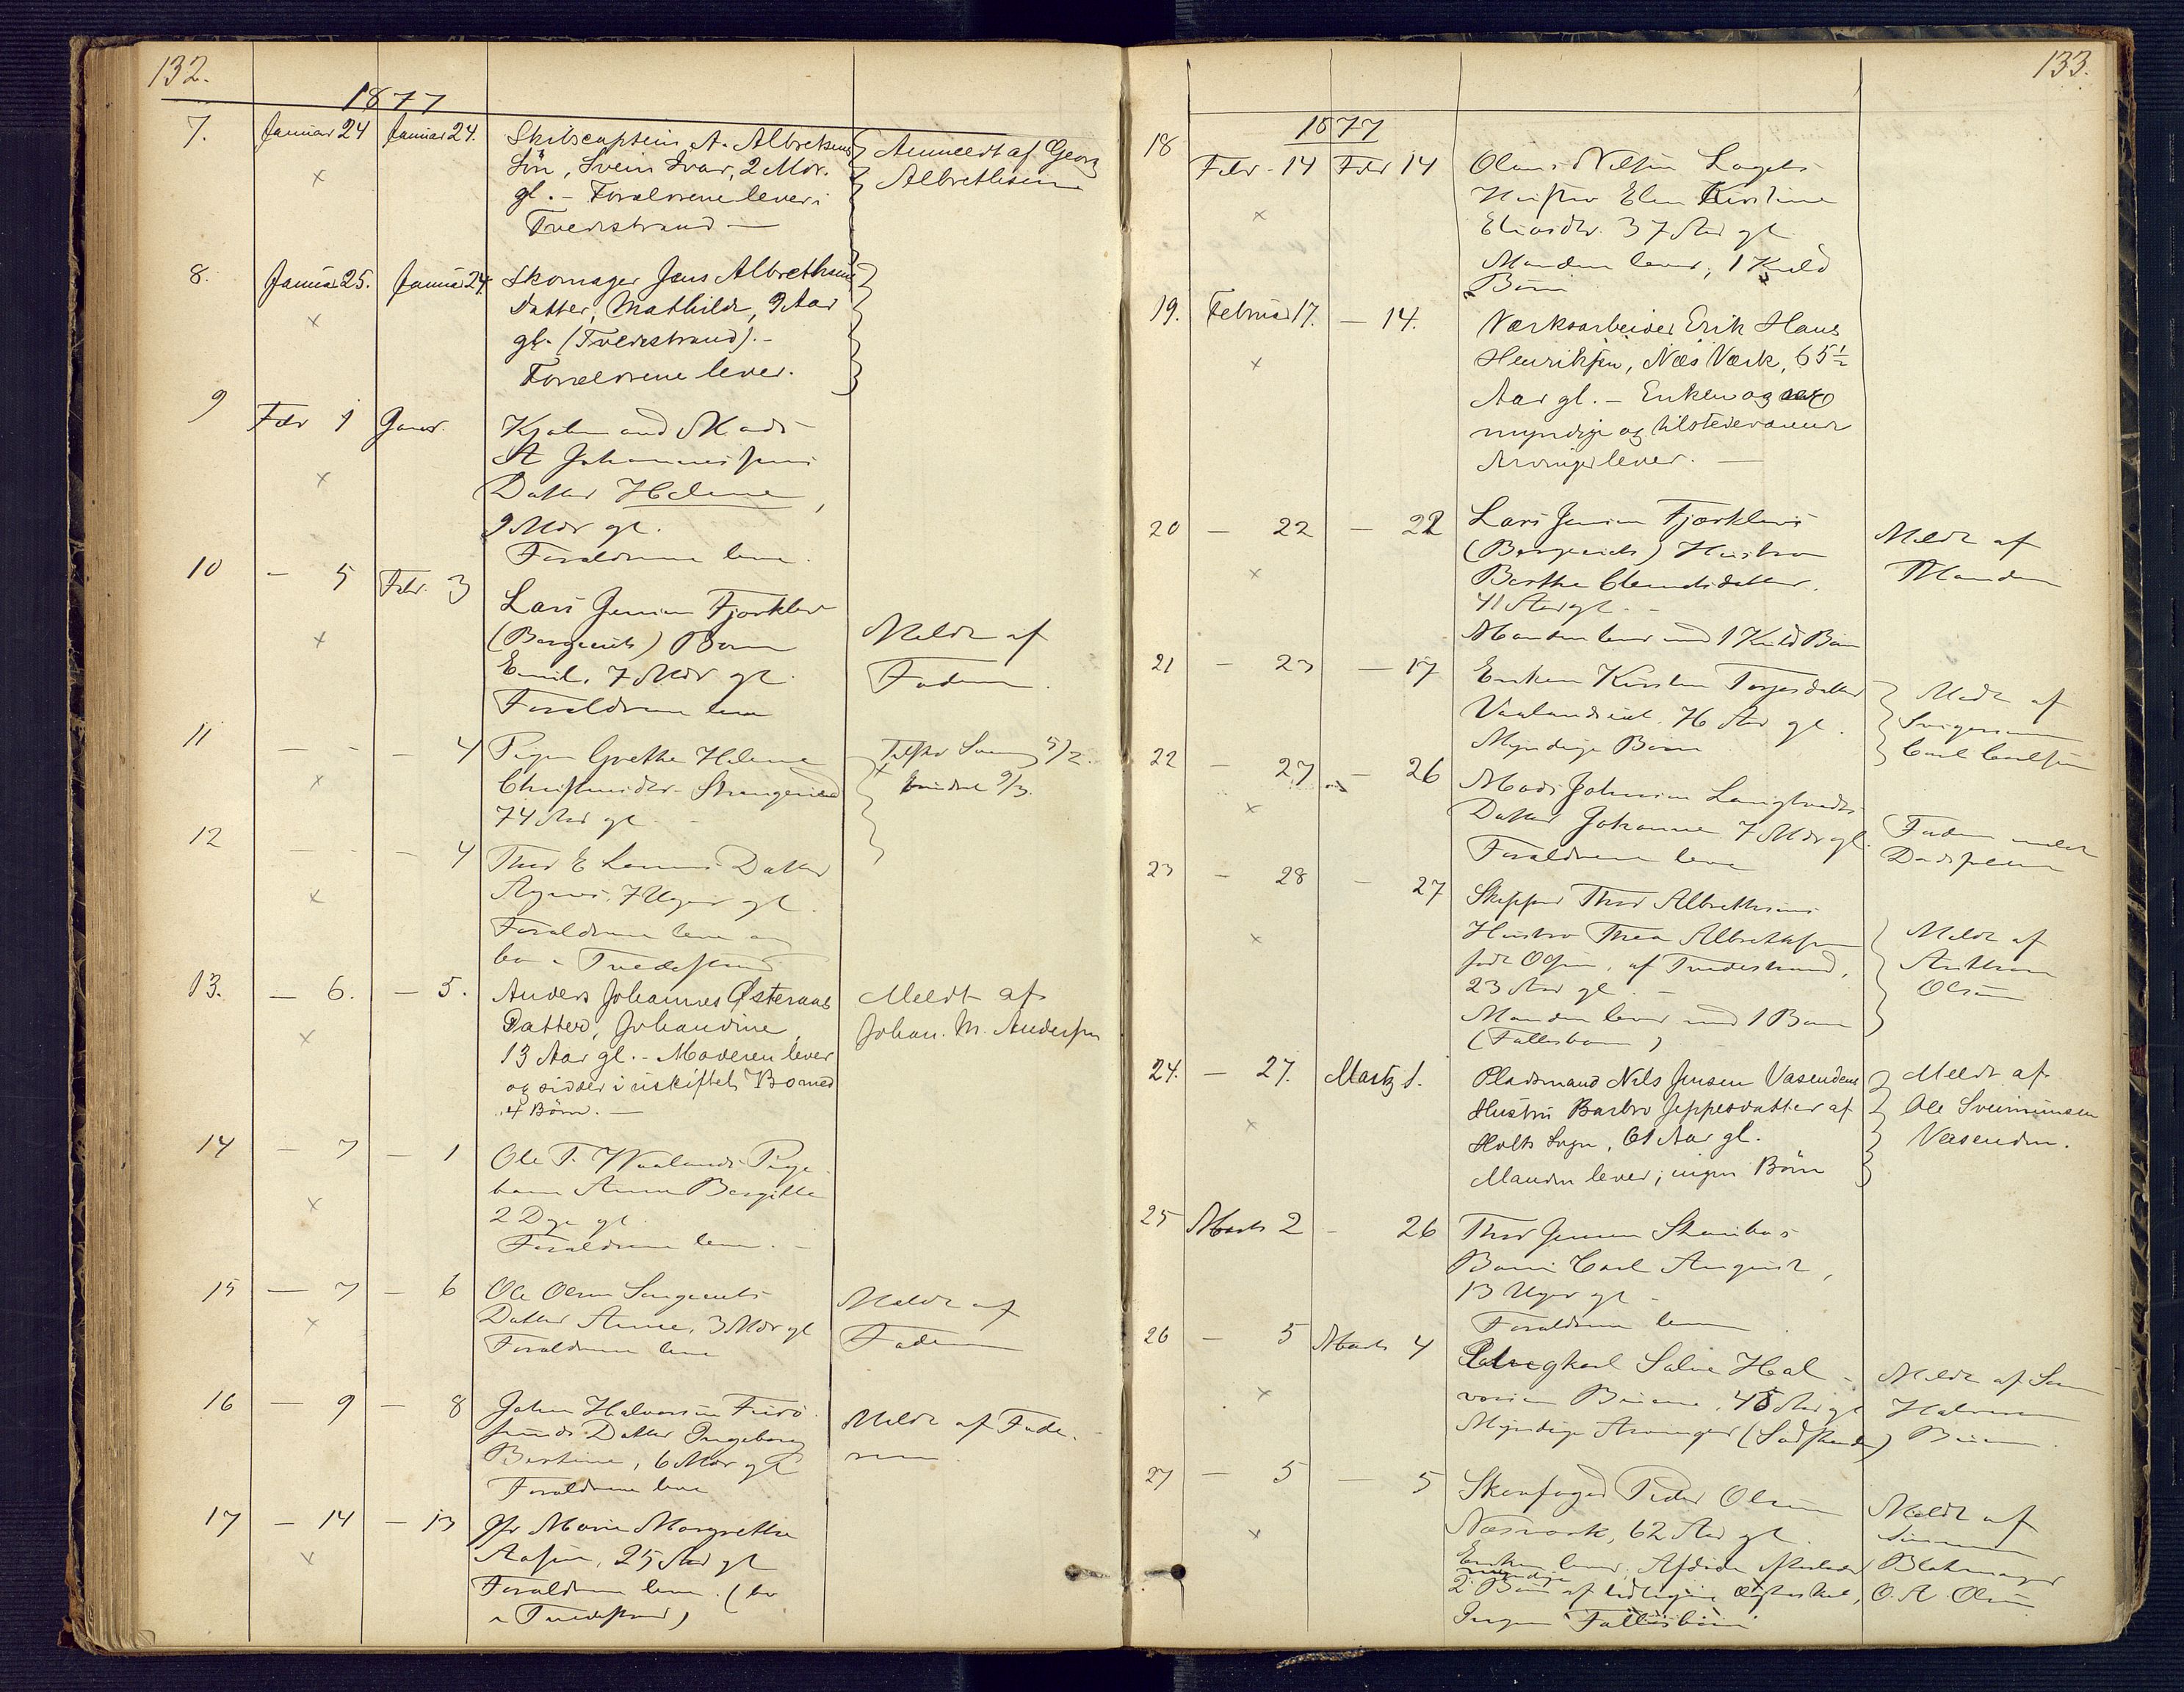 132.
1877
7. Januar 24 Januar 24. Skibscaptein A. Albrethsens Anmeldt af Georg
Sön, Svein Ivar, 2 Mdr. Albrethsen
gl. – Forældrene lever i
Tvedestrand —
8. Januar 25. Januar 24. Skomager Jens Albrethsens
Datter, Mathilde, 9 Aar
gl. (Tvedestrand). –
Forældrene lever.
9 Febr 1 Januar. Kjøbmand Mads
A Johannessens
Datter Helene,
9 Mdr gl.
Forældrene leve.
10 – 5 Febr. 3 Lars Jensen Fjærkleiv
(Bergeeiets) Barn Meldt af
Emil, 7 Mdr gl. Faderen.
Forældrene leve
11 – – – 4 Pigen Grethe Helene
Christensdtr. 5/2.
74 Aar gl. 9/3.
12 – – – 4 Thor E Datter
Agnes, 7 Uger gl.
Forældrene leve og
bo i Tvedestrand
13. – 6. – 5. Anders Johannes Østeraas Meldt af
Datter, Johandine, Johan. M. Andersen
13 Aar gl. – Moderen lever
og sidder i uskiftet Bo med
4 Börn. —
14 – 7 – 1 Ole T. Waalands Pige-
barn Anne Bergitte
2 Dge gl.
Forældrene leve. –
15 – 7 – 6 Ole Olsen Meldt af
Datter Anne, 3 Mdr gl Faderen
Forældrene leve
16 – 9 – 8 John Halvorsen Furö-
sunds Datter Ingeborg Meldt af Fade-
Bertine, 6 Mdr gl ren.
Forældrene leve
17 – 14 – 13 Marie Margrethe
Aasen, 25 Aar gl
Forældrene leve. (bo
i Tvedestrand)
133.
1877
18 Febr – 14 Febr 14 Olaus Nilsen
Hustru Elen Kirstine
Eliasdtr. 37 Aar gl.
Manden lever, 1 Kuld
Börn
19. Februar 17. – 14. Værksarbeider Erik Hans
Henriksen, Næs Værk, 65½
Aar gl. – Enken og
myndige og tilstedeværende
Arvinger lever. —
20 – 22 – 22 Lars Jensen Fjærkleivs Meldt af
(Bergeeiets) Hustru Manden
Berthe Clemetsdatter,
41 Aar gl. –
Manden lever med 1 Kuld Børn
21 – 23 – 17 Enken Kirsten Torjesdatter Meldt af
76 Aar gl. Svigersønnen
Myndige Børn Carl Carlsen
22 – 27 – 26 Mads Johnsen
Datter Johanne 7 Mdr gl. Faderen meldt
Forældrene leve Dødsfaldet
23 – 28 – 27 Skipper Thor Albrethsens
Hustru Thea Albrethsen Meldt af
født Olsen, af Tvedestrand, Anthon
23 Aar gl. – Olsen
Manden lever med 1 Barn
(Fællesbarn)
24. – 27. Martz 1. Pladsmand Nils Jensen Vasendens Meldt af
Hustru Barbro Jeppesdatter af Ole Sveinunsen
Holts Sogn, 61 Aar gl. Vasenden.
Manden lever; ingen Börn
25 Marts 2 – 26 Thor Jensen
Barn Carl August,
13 Uger gl –
Forældrene leve
26 – 5 Marts 4 Ungkarl Salve Hal-
vorsen 45 Aar gl Meldt af
Myndige Arvinger (Södskende) Halvorsen
27 – 5 – 5 Skovfoged Peder Olsen Meldt af
Næsværk, 62 Aar gl. Sønnen
Enken lever, Afdøde efterlader Blikmager
2 myndige Børn af tidligere Ægteskab, O. A. Olsen
Ingen Fællesbørn